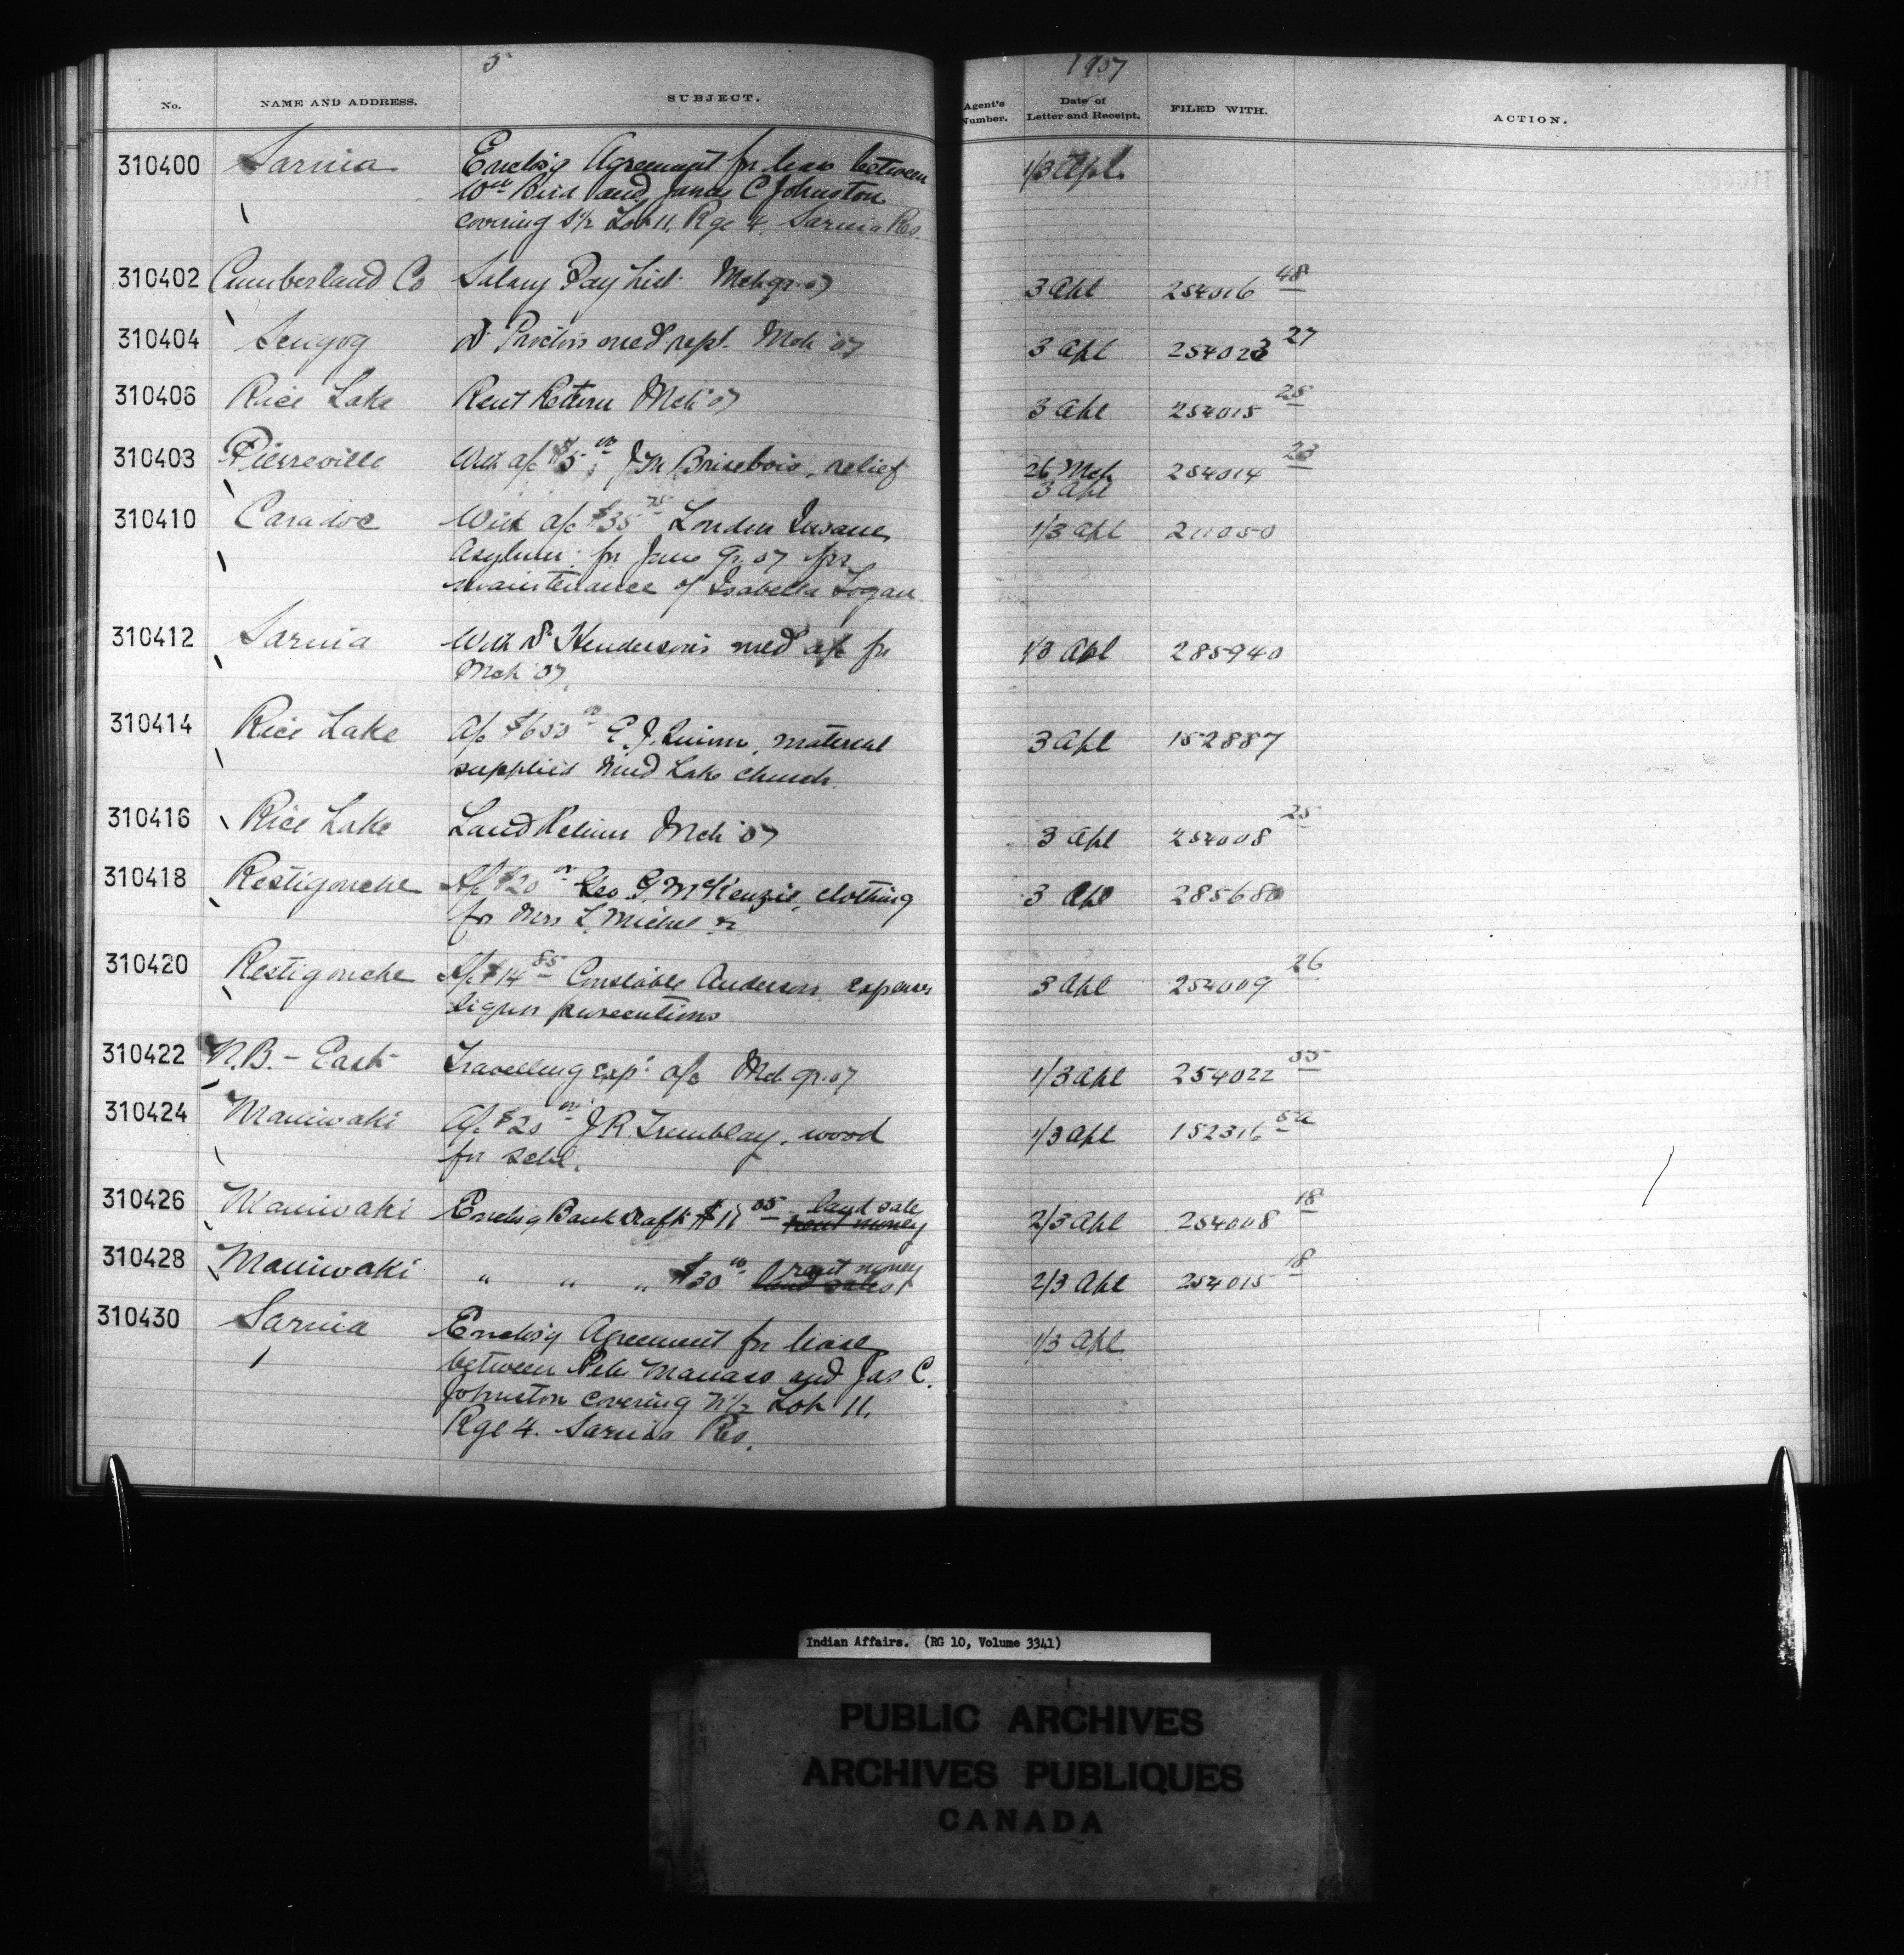 5 1907
No. NAME AND ADDRESS. SUBJECT. Agent's Number. Date of Letter and Receipt. FILED WITH. ACTION.
310400 Sarnia Enclos'g Agreement for lease between 1/3 Apl.
Wm Bird and James C Johnston
covering S½ Lot 11, Rge 4, Sarnia Res.
310402 Cumberland Co Salary Pay List Mch qr. 07 3 Apl 254016 48
310404 Scugog Dr Proctors med rept. Mch '07 3 Apl 254023 27
310406 Rice Lake Rent Return Mch '07 3 Apl 254015 25
310403 Pierreville With a/c $5 00, J M Brisebois, relief 26 Mch 254014 23
3 Apl
310410 Caradoc With a/c $35 75 London Insane 1/3 Apl 211050
Asylum for June qr. 07 for
maintenance of Isabella Logan
310412 Sarnia With Dr Henderson's med a/c for 1/3 Apl 285940
Mch '07.
310414 Rice Lake A/c $650 00 E. J. Quinn, material 3 Apl 152887
supplied Mud Lake church.
310416 Rice Lake Land Return Mch '07 3 Apl 254008 25
310418 Restigouche A/c $20 00 Geo G. McKenzie, clothing 3 Apl 285680
for Mrs L. Michel
310420 Restigouche A/c $14 85 Constable Anderson, expenses 3 Apl 254009 26
liquor prosecutions
310422 N.B. - East Travelling exp. a/c Mch qr. 07 1/3 Apl 254022 55
310424 Maniwaki A/c $20 00 J R. Tremblay, wood 1/3 Apl 152316 5a
for schl.
310426 Maniwaki Enclos'g Bank draft $11 05 rent money land sale 2/3 Apl 254008 18
310428 Maniwaki " " " $30 00 land sales rent money 2/3 Apl 254015 18
310430 Sarnia Enclos'g Agreement for lease 1/3 Apl
between Manass and Jas C.
Johnston covering N½ Lot 11,
Rge 4. Sarnia Res.
Indian Affairs. (RG 10, Volume 3341)
PUBLIC ARCHIVES
ARCHIVES PUBLIQUES
CANADA